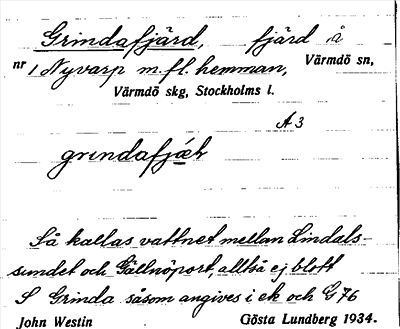 Grindafjärd, fjärd å
nr 1 Nyvarp m.fl. hemman, Värmdö sn,
Värmdö skg, Stockholms l.
A 3
grındafjæ̀ḷ
Så kallas vattnet mellan Lindals-
sundet och Gällnöport, alltså ej blott
S Grinda såsom angives i ek och G 76
John Westin Gösta Lundberg 1934.